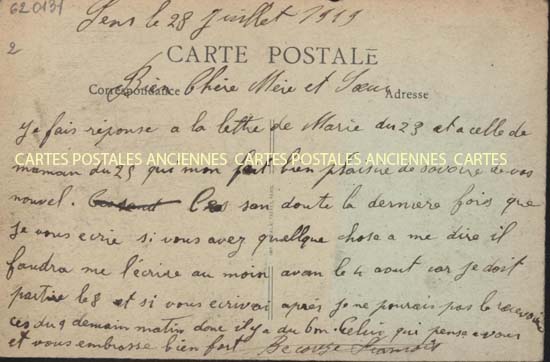 620131
Sens le 28 Juillet 1919
2
CARTE POSTALE
Correspondance
Adresse
Bien Chère Mère et Sœur
Je fais réponse a la lettre de Marie du 23 et a celle de
CARTES POSTALES ANCIENNES CARTES POSTALES ANCIENNES CARTES
maman du 25 qui mon fait bien plaisire de savoire de vos
nouvel. Ces san doute la dernière fois que
Je vous ecrie si vous avez quellque chose a me dire il
faudra me l'écrire au moin avan le 4 aout car je doit
partire le 8 et si vous ecrivai après je ne pourais pas le recevoire
ces du 9 demain matin donc il y a du bon. Celui qui pense a vous
et vous embrasse bien fort